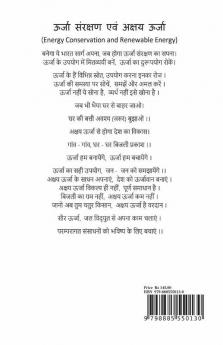 ऊर्जा संरक्षण एवं अक्षय ऊर्जा
(Energy Conservation and Renewable Energy)
बनेगा ये भारत स्वर्ग अपना, जब होगा ऊर्जा संरक्षण का सपना।
ऊर्जा के उपयोग में मितव्ययी बनें, ऊर्जा का दुरूपयोग रोकें।
ऊर्जा के हैं विभिन्न स्रोत, उपयोग करना इनका रोज ।
ऊर्जा की समस्या पर सोचें, समझें और अमल करें ।
ऊर्जा नहीं ये सोना है, व्यर्थ नहीं इसे खोना है।
जब भी मैया घर से बाहर जाओ।
घर की बत्ती अवश्य (जरूर) बुझाओ ।।
अक्षय ऊर्जा से होगा देश का विकास।
गांव - गांव, घर - घर बिजली प्रकाश ।।
ऊर्जा हम बनायेंगे, ऊर्जा हम बचायेंगे ।
ऊर्जा का सही उपयोग, जन - जन को समझायेंगे ।।
अक्षय ऊर्जा के साधन अपनाएं, देश को ऊर्जावान बनाएं ।
अक्षय ऊर्जा विकल्प ही नहीं, पूर्ण समाधान है ।
बिजली का गम नहीं, अक्षय ऊर्जा कम नहीं ।
जानो अब तुम चतुर किसान, अक्षय ऊर्जा है वरदान ।
सौर ऊर्जा, जल विद्युत से अपना काम चलाएं ।
परम्परागत संसाधनों को भविष्य के लिए बचाएं ।।
Price Rs 145.00
ISBN 979-888555013-0
9 798885 550130